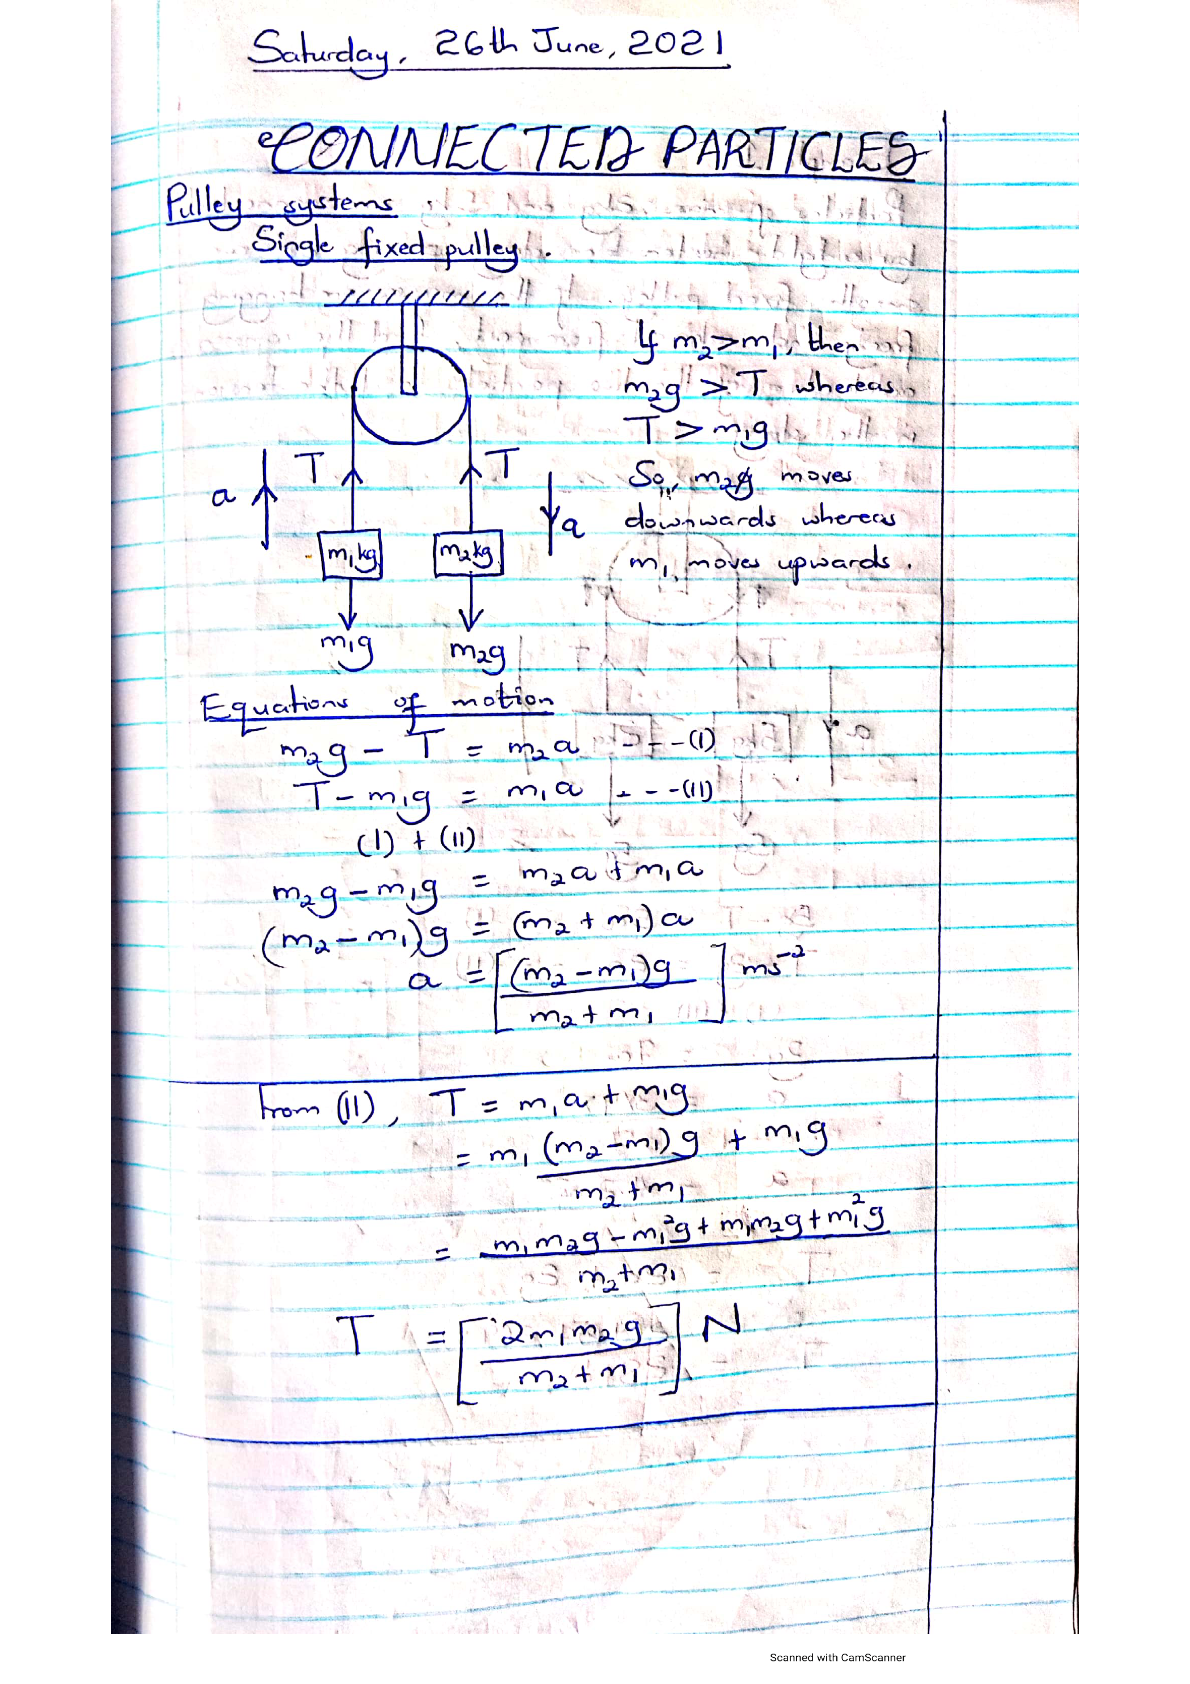 Saturday, 26th June, 2021
CONNECTED PARTICLES
Pulley systems
Single fixed pulley.
If m₂>m₁, then
m₂g > T whereas
T > m₁g
So, m₂ moves
downwards whereas
m₁ moves upwards.
a T T a
m₁kg m₂kg
m₁g m₂g
Equations of motion
m₂g - T = m₂a ---(I)
T - m₁g = m₁a ---(II)
(I) + (II)
m₂g - m₁g = m₂a + m₁a
(m₂ - m₁)g = (m₂ + m₁)a
a = [(m₂ - m₁)g / m₂ + m₁] ms⁻²
from (II), T = m₁a + m₁g
= m₁ (m₂ - m₁)g / m₂ + m₁ + m₁g
= m₁m₂g - m₁²g + m₁m₂g + m₁²g / m₂ + m₁
T = [2m₁m₂g / m₂ + m₁] N
Scanned with CamScanner